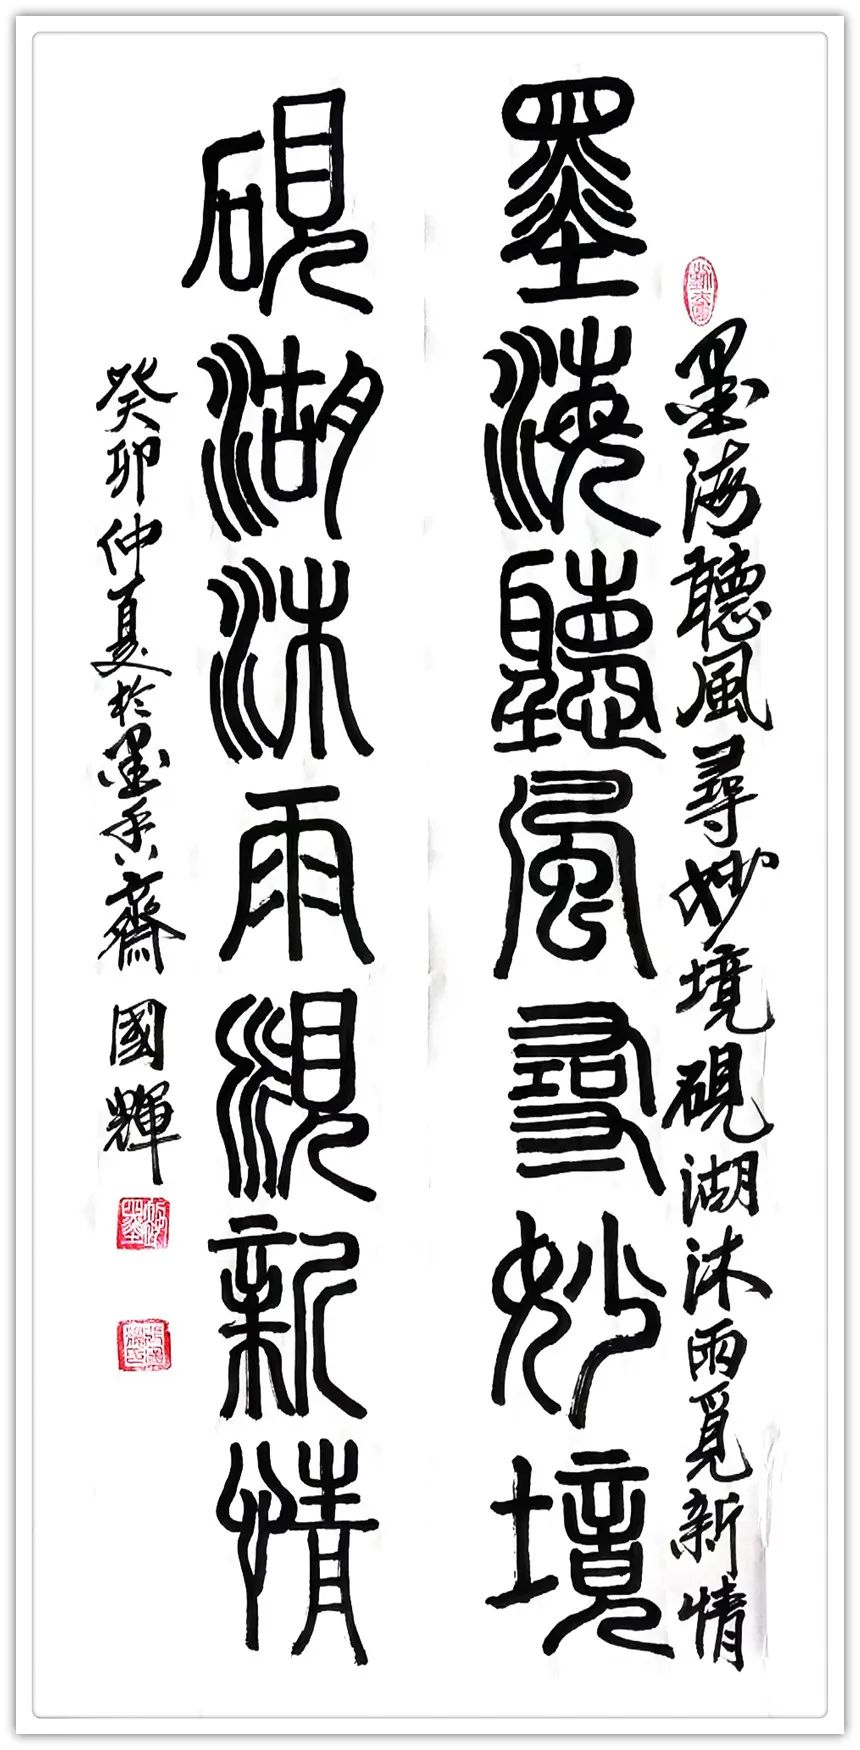 墨海聽風尋妙境硯湖沐雨覓新情
墨海聽風尋妙境
硯湖沐雨覓新情
癸卯仲夏於墨香齋國輝